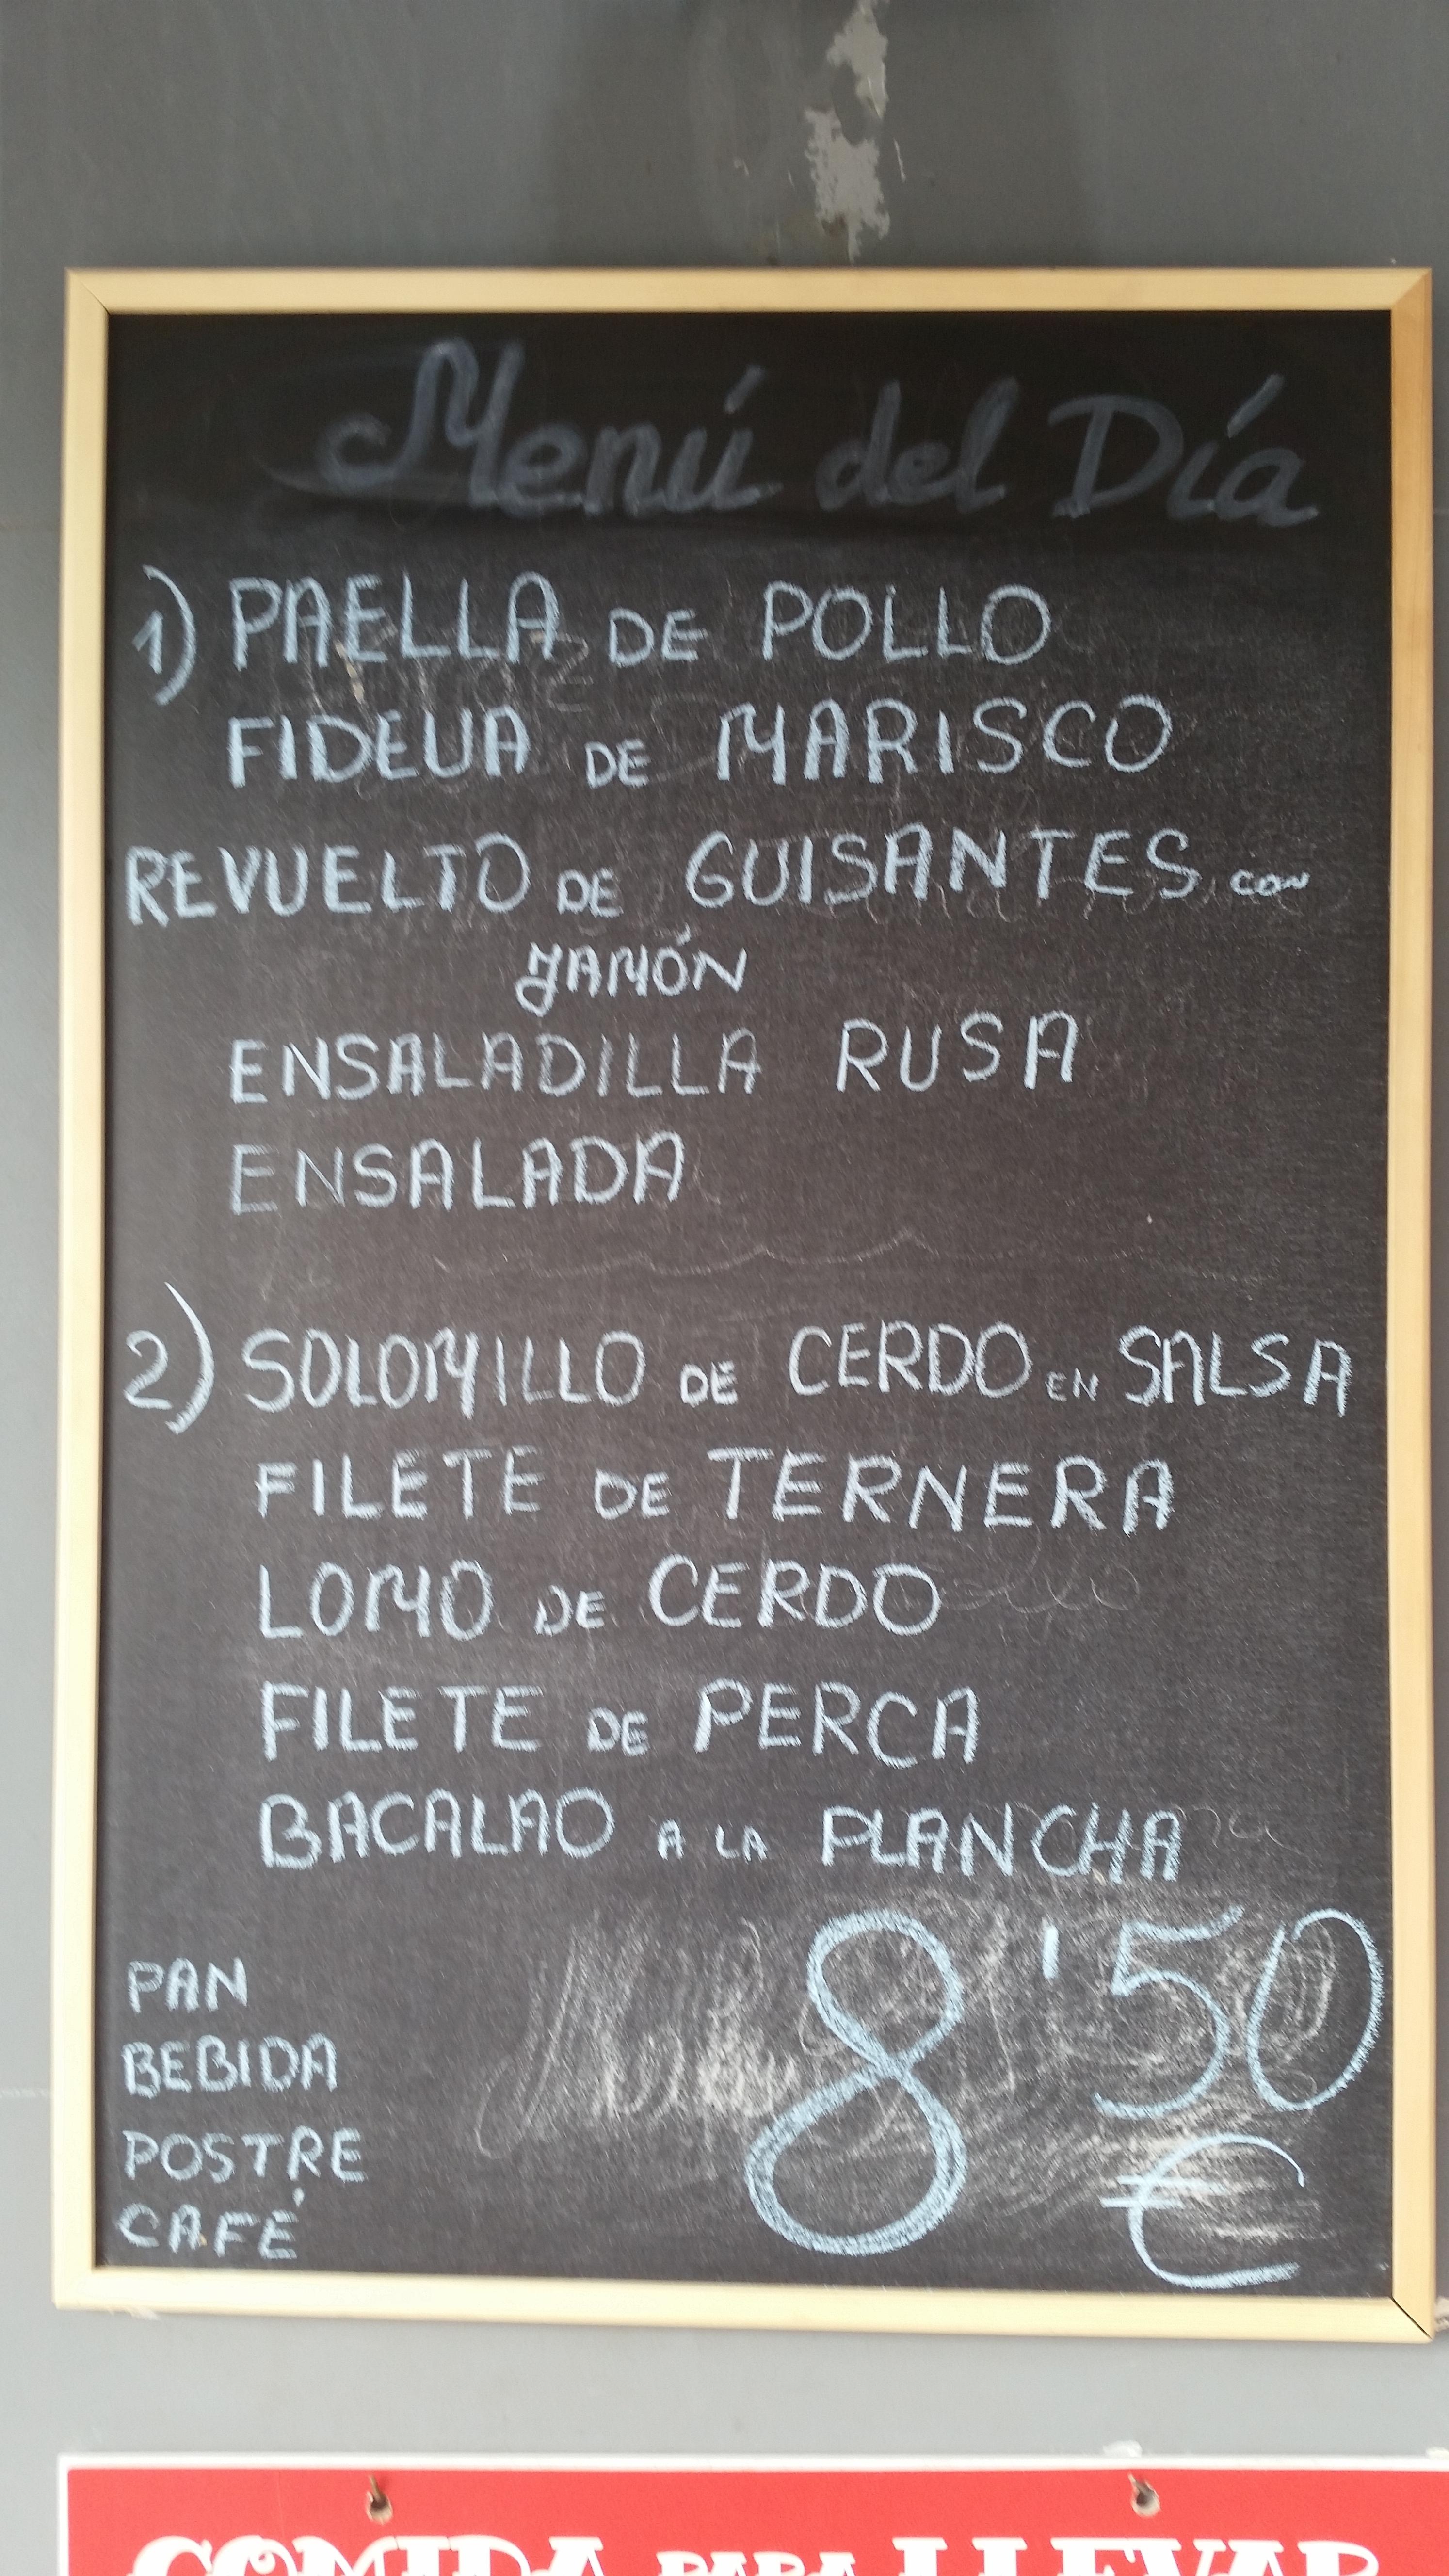 Menú del Día
1) PAELLA DE POLLO
FIDEUA DE MARISCO
REVUELTO DE GUISANTES con
JAMÓN
ENSALADILLA RUSA
ENSALADA
2) SOLOMILLO DE CERDO EN SALSA
FILETE DE TERNERA
LOMO DE CERDO
FILETE DE PERCA
BACALAO A LA PLANCHA
PAN
BEBIDA
POSTRE
CAFÉ
8'50
€
COMIDA PARA LLEVAR